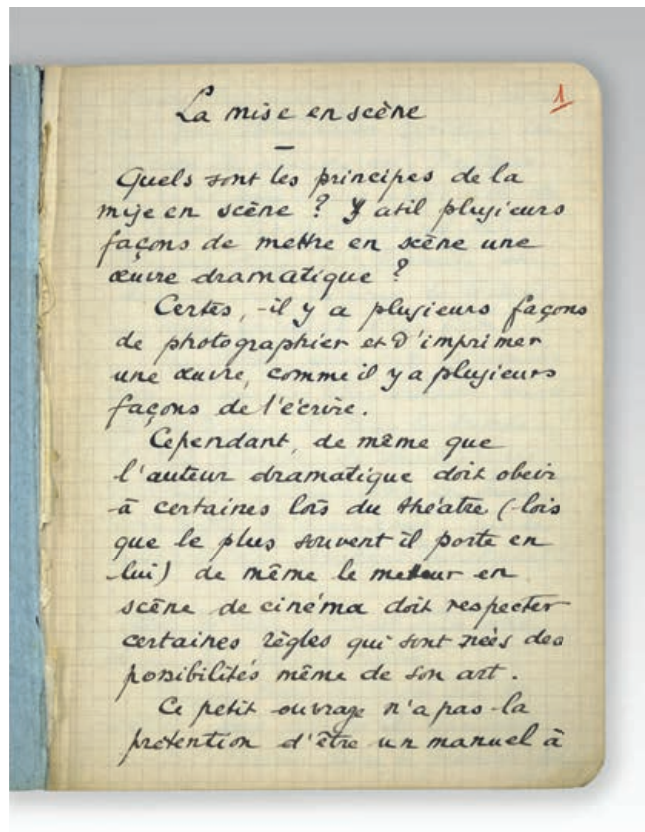 La mise en scène
1
Quels sont les principes de la
mise en scène ? Y atil plusieurs
façons de mettre en scène une
œuvre dramatique ?
Certes, il y a plusieurs façons
de photographier et d'imprimer
une œuvre, comme il y a plusieurs
façons de l'écrire.
Cependant, de même que
l'auteur dramatique doit obeir
à certaines lois du théatre (lois
que le plus souvent il porte en
lui) de même le metteur en
scène de cinéma doit respecter
certaines règles qui sont nées des
possibilités même de son art.
Ce petit ouvrage n'a pas la
prétention d'être un manuel à